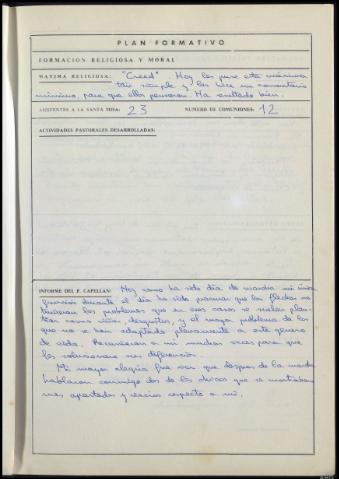 PLAN FORMATIVO
FORMACION RELIGIOSA Y MORAL
MAXIMA RELIGIOSA: "Creed". Hoy les puse esta máxima
tan simple y les hice un comentario
mínimo, para que ellos pensaran. Ha resultado bien.
ASISTENTES A LA SANTA MISA: 23 NUMERO DE COMUNIONES: 12
ACTIVIDADES PASTORALES DESARROLLADAS:
INFORME DEL P. CAPELLAN: Hoy como ha sido día de marcha mi
durante el día ha sido procurar que los flechas no
tuvieran los problemas que en esos casos se suelen plan
tear como y el mayor problema de los
que no se han adaptado plenamente a este género
de vida. Recurrieron a mi muchas veces para que
les solucionara sus diferencias.
Mi mayor alegría fue ver que despues de la marcha
hablaron conmigo dos de los chicos que se mostraban
mas apartados y reacios respecto a mi.